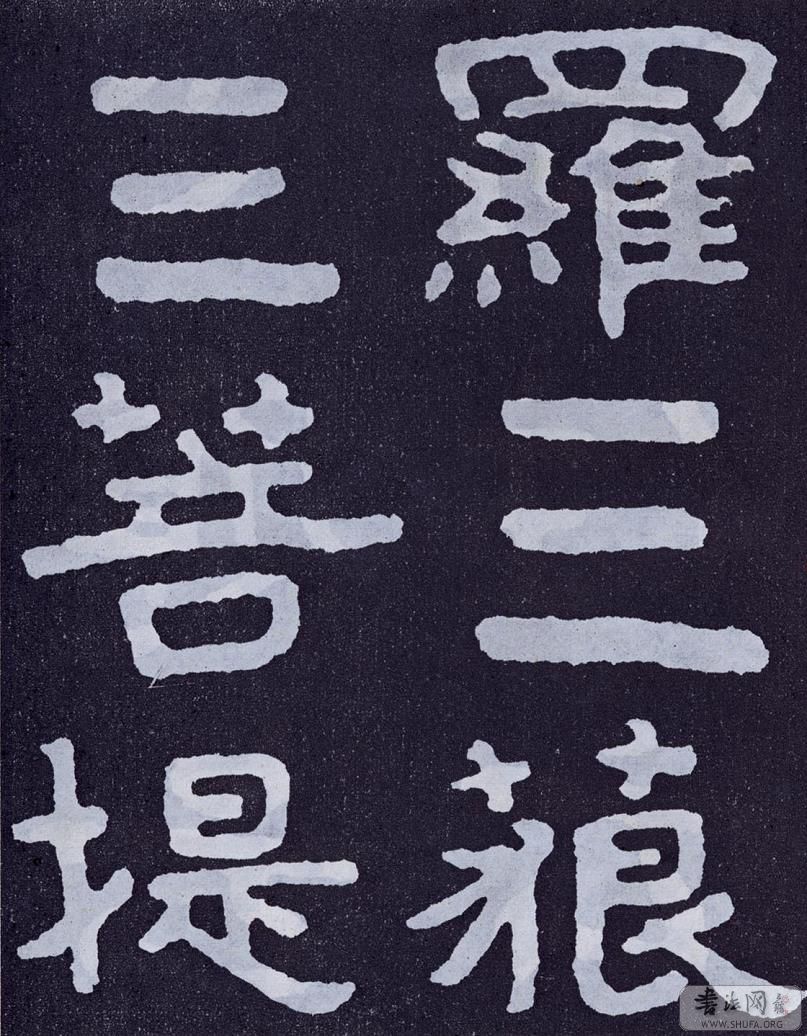 羅三藐
三菩提
書法网
WWW.SHUFA.ORG